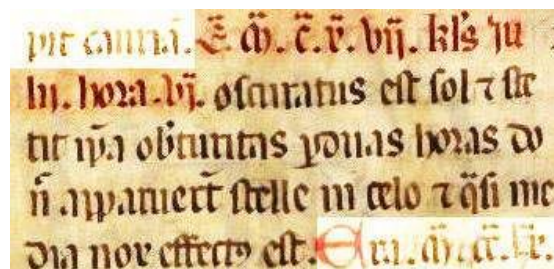 pit cauriā. E. M̃. c̃. x̃. vij. kl's iu
lii. hora .vj. oscuratus est sol ⁊ ste
tit ip̃a obscuritas p duas horas do
ñ apparuert̃ stelle in celo ⁊ q̃si me
dia nox effect9 est. Era. M̃. cc̃.